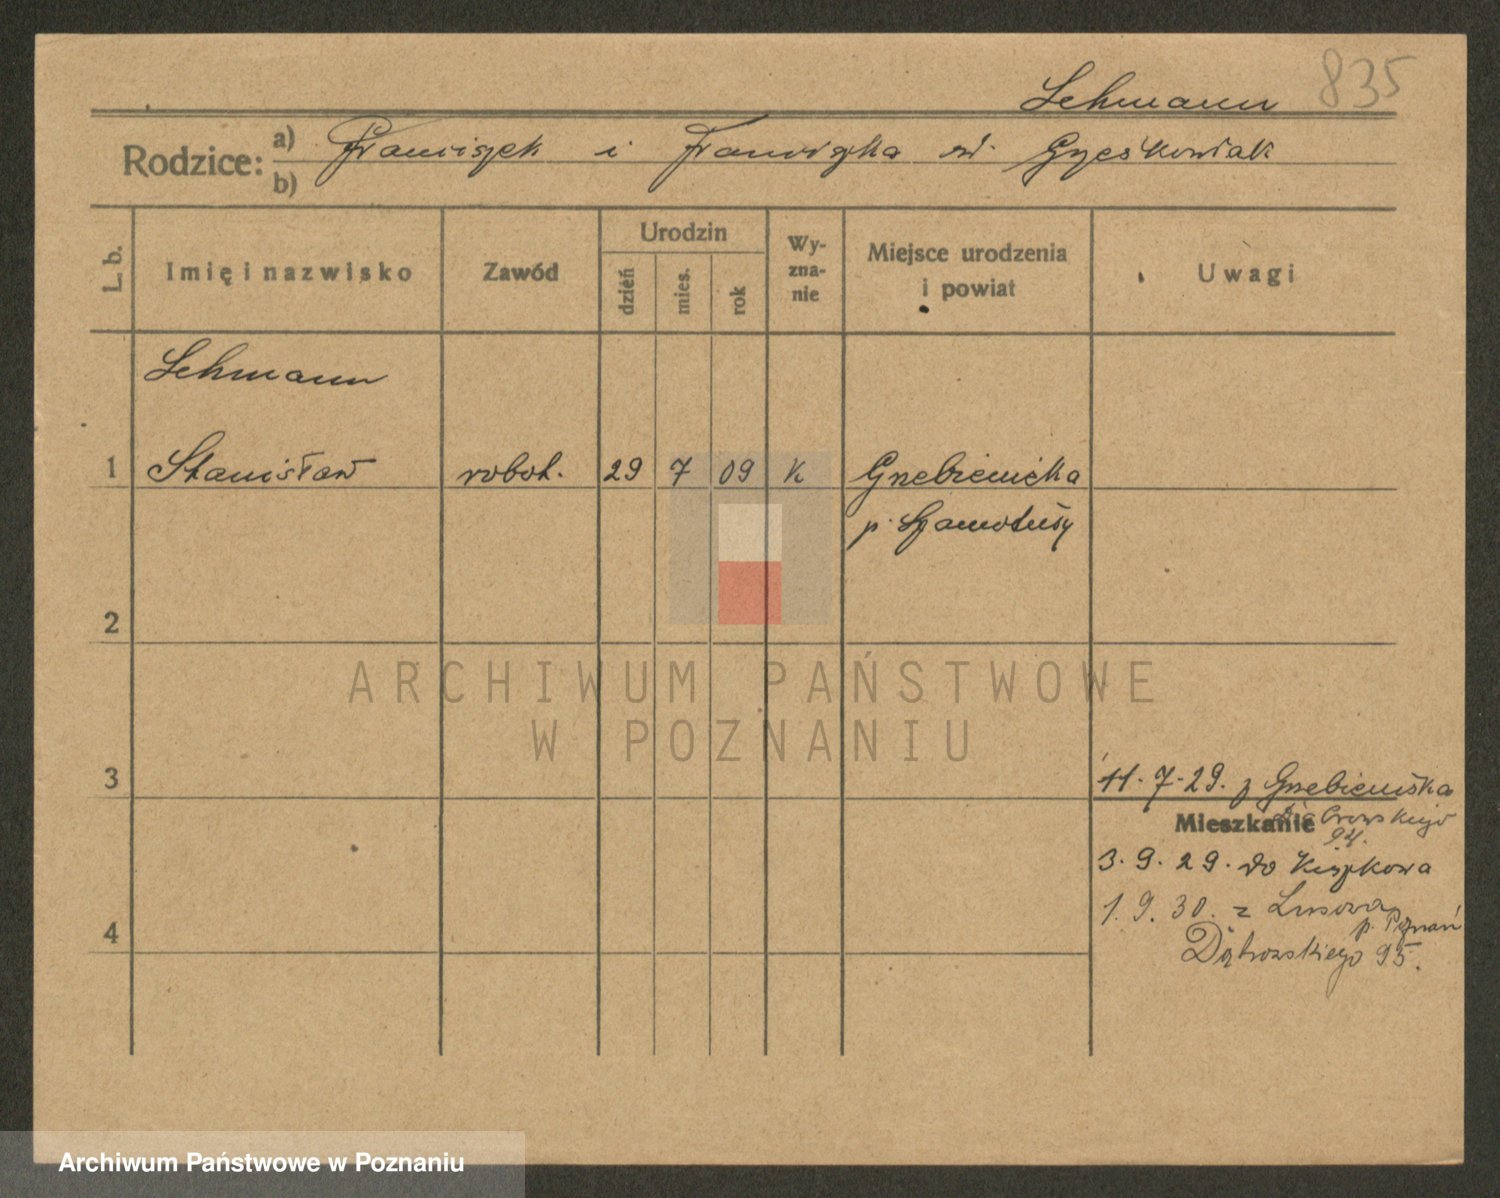 Lehmann 835
Rodzice: a) Franciszek i Franciszka
b) Grześkowiak
L. b. Imię i nazwisko Zawód Urodzin dzień mies. rok Wy-zna-nie Miejsce urodzenia i powiat Uwagi
Lehmann
1 Stanisław robot. 29 7 09 K Grzebienisko
p. Szamotuły
2
3
11. 7. 29. z Grzebieniska
Mieszkanie Dąbrowskiego
3. 9. 29. do Kiszkowa
1. 9. 30. z Lusowa
p. Poznań
4
Dąbrowskiego 95.
ARCHIWUM PAŃSTWOWE
W POZNANIU
Archiwum Państwowe w Poznaniu